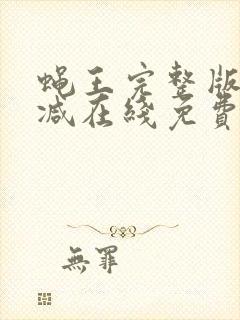 蝇王完整版
减在线免費
無罪